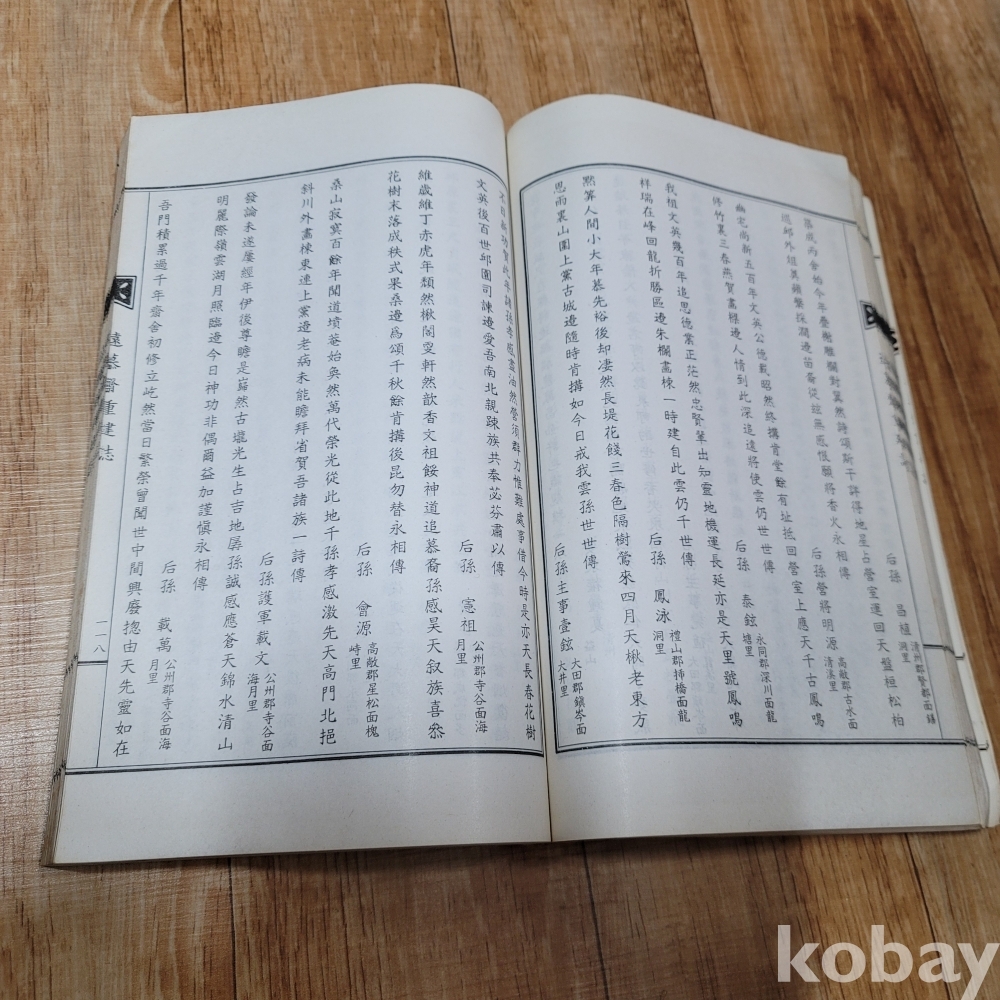 后孫 昌植 清州郡賢都面鎭洞里
築成丙舍始今年疊榭雕欄對巽然鍾頌斯干詳得地星占營室運回天盤桓松柏
巡邱外俎奠蘋蘩採澗邊苗裔從玆無感恨願將香火永相傳
后孫營將明源 高敞郡古水面清溪里
幽宅尚新五百年文英公德載昭然終搆肯堂餘有址抵回營室上應天千古鳳鳴
脩竹裏三春燕賀畵樑邊人情到此深追遠將使雲仍世世傳
后孫 泰鉉 永同郡深川面龍塘里
我祖文英幾百年追思德業正茫然忠賢輩出知靈地機運長延亦是天里號鳳鳴
祥瑞在峰回龍折勝區邊朱欄畵棟一時建自此雲仍千世傳
后孫 鳳泳 禮山郡揷橋面龍洞里
黙算人間小大年墓先裕後却凄然長堤花餞三春色隔樹鶯來四月天楸老東方
思雨裏山圍上黨古城邊隨時肯搆如今日戒我雲孫世世傳
后孫主事壹鉉 大田郡鎭岑面大井里
文英後百世邱園司諫邊愛吾南北親疎族共奉苾芬肅以傳
后孫 憲祖 公州郡寺谷面海月里
維歲維丁赤虎年頹然楸閣更軒然歆香文祖餒神道追慕裔孫感昊天叙族喜叅
花樹末落成秩式果桑邊爲頌千秋餘肯搆後昆勿替永相傳
后孫 會源 高敞郡星松面槐峙里
桑山寂寞百餘年聞道墳菴始奐然萬代榮光從此地千孫孝感激先天高門北挹
斜川外畵棟東連上黨邊老病未能瞻拜省賀吾諸族一詩傳
后孫護軍載文 公州郡寺谷面海月里
發論未遂屢經年伊後尊瞻是巋然古壠光生占吉地孱孫誠感應蒼天錦水清山
明麗際嶺雲湖月照臨邊今日神功非偶爾益加謹愼永相傳
后孫 載萬 公州郡寺谷面海月里
吾門積累過千年齋舍初修立屹然當日繁榮曾聞世中間興廢捴由天先靈如在
遠慕齋重建誌
一一八
kobay